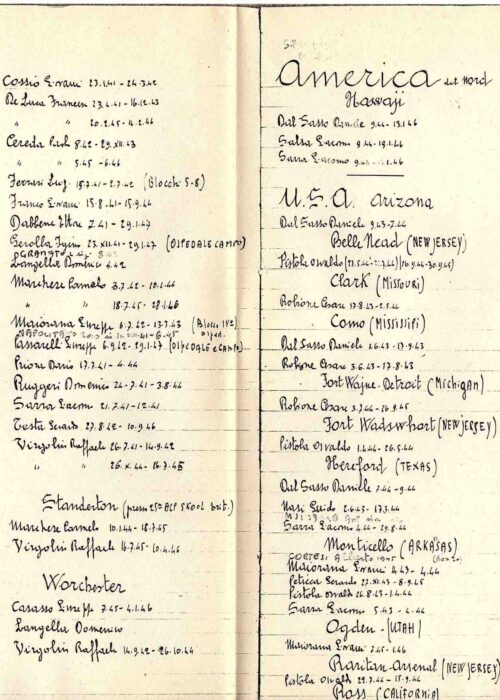 Cossio Ernani 23.1.41 - 24.3.42
De Luca Francesco 23.4.41 - 16.12.43
" " 20.2.45 - 4.2.46
Cereda Paolo 8.42 - 29.XII.43
" " 5.45 - 6.46
Ferrari Luigi 15.7.41 - 2.7.42 (Blocchi 5-8)
Franco Ernani 15.8.41 - 15.9.44
Dabbene Ettore 7.41 - 29.1.47
Gerolla Igino 23.XII.41 - 29.1.47 (OSPEDALE CAMPO)
Langella Domenico 4.42
Marchese Carmelo 3.7.42 - 10.1.44
" " 18.7.45 - 28.1.46
Maiorana Giuseppe 6.7.42 - 13.7.43
Passarelli Giuseppe 6.9.42 - 29.1.47 (OSPEDALE e CAMPO)
Prione Dario 17.7.41 - 4.44
Ruggeri Domenico 24.7.41 - 3.8.44
Sarra Giacomo 21.7.41 - 12.41
Testa Gerardo 27.8.42 - 10.9.46
Virgolin Raffaele 26.7.41 - 14.9.42
" " 26.X.44 - 16.7.45
Standerton
Marchese Carmelo 10.1.44 - 18.7.45
Virgolin Raffaele 16.7.45 - 10.4.46
Worchester
Carasso Giuseppe 7.45 - 4.1.46
Langella Domenico
Virgolin Raffaele 14.9.42 - 26.10.44
America del nord
Hawaji
Dal Sasso Daniele 9.44 - 13.1.46
Salsa Giacomo 9.44 - 19.1.46
Sarra Giacomo 9.44 - 1.46
U.S.A. Arizona
Dal Sasso Daniele 9.43 - 7.44
Belle Mead (NEW JERSEY)
Pistola Osvaldo
Clark (MISSOURI)
Rohione Cesare 17.8.43 - 2.5.44
Como (MISSISSIPI)
Dal Sasso Daniele 3.6.43 - 17.9.43
Rohione Cesare 3.6.43 - 17.8.43
Fort Wayne - Detroit (Michigan)
Rohione Cesare 3.7.44 - 26.9.45
Fort Wadswhort (NEW JERSEY)
Pistola Osvaldo 1.4.44 - 26.5.44
Hereford (TEXAS)
Dal Sasso Daniele 7.44 - 9.44
Nasi Guido 2.6.43 - 17.3.44
Sarra Giacomo 4.44 - 29.8.44
Monticello (ARKASAS)
CORTESI
Maiorana Ernani 4.43 - 4.44
Peticca Gerardo 27.XI.43 - 8.9.45
Pistola Osvaldo 26.8.43 - 1.4.44
Sarra Giacomo 5.43 - 4.44
Ogden - (UTAH)
Maiorana Ernani 7.45 - 1.46
Raritan-Arsenal (NEW JERSEY)
Pistola Osvaldo 29.7.44 - 15.9.44
Ross (CALIFORNIA)